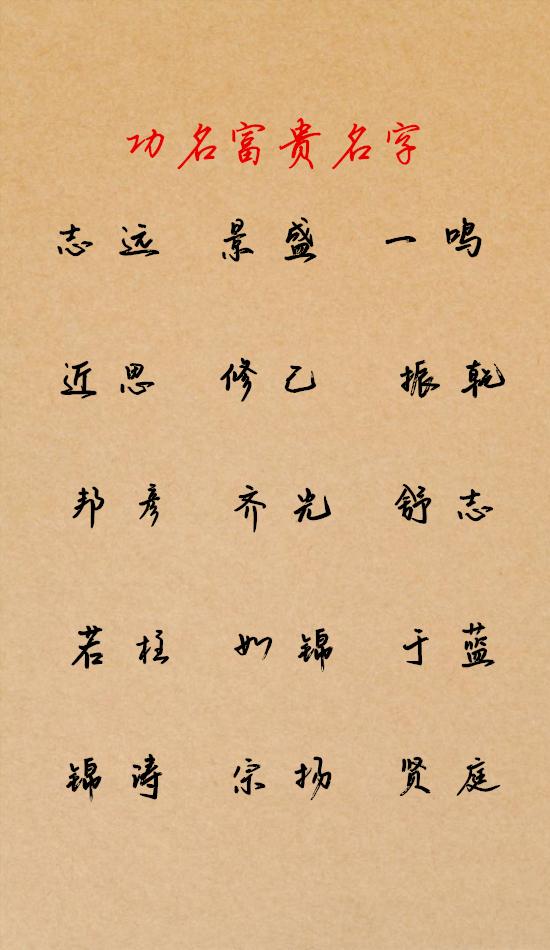 功名富贵名字
志远 景盛 一鸣
近思 修己 振乾
邦彦 齐光 舒志
若柱 如锦 于蓝
锦涛 宗扬 贤庭